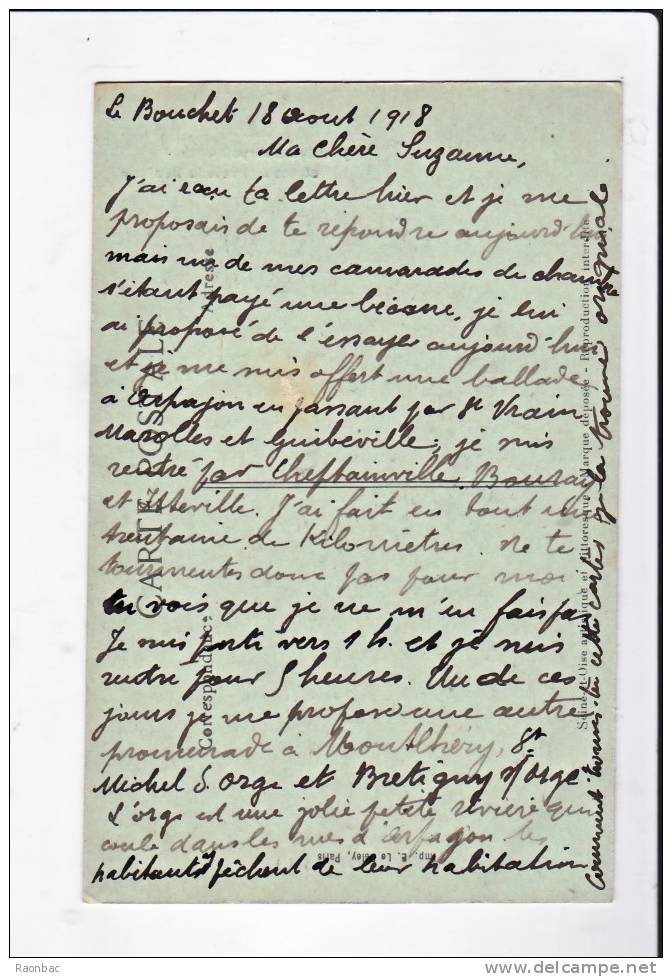 Le Bouchet 18 aout 1918
Ma chère Suzanne,
J'ai ta lettre hier et je me
proposais de te répondre aujourd'hui
mais un de mes camarades de chambre
s'étant payé une bécane, je lui
ai proposé de l'essayer aujourd'hui
et je me suis offert une ballade
à Arpajon en passant par St Vrain
Marolles et Guibeville; je suis
rentré par Cheptainville, Bouray
et Itteville. J'ai fait en tout une
trentaine de Kilomètres. Ne te
tourmentes donc pas pour moi
tu vois que je ne m'en fais pas
Je suis parti vers 1 h. et je suis
rentré pour 5 heures. Un de ces
jours je me propose une autre
promenade à Montlhéry, St
Michel S. Orge et Bretigny s/Orge
L'orge est une jolie petite rivière qui
coule dans les rues d'Arpajon les
habitants y pêchent de leur habitation
Comment trouves-tu cette carte, je la trouve originale
CARTE POSTALE
Correspondance
Adresse
Seine-et-Oise artistique et pittoresque - Marque déposée - Reproduction interdite
Imp. E. Le Deley, Paris
Raonbac
©delcampe.net